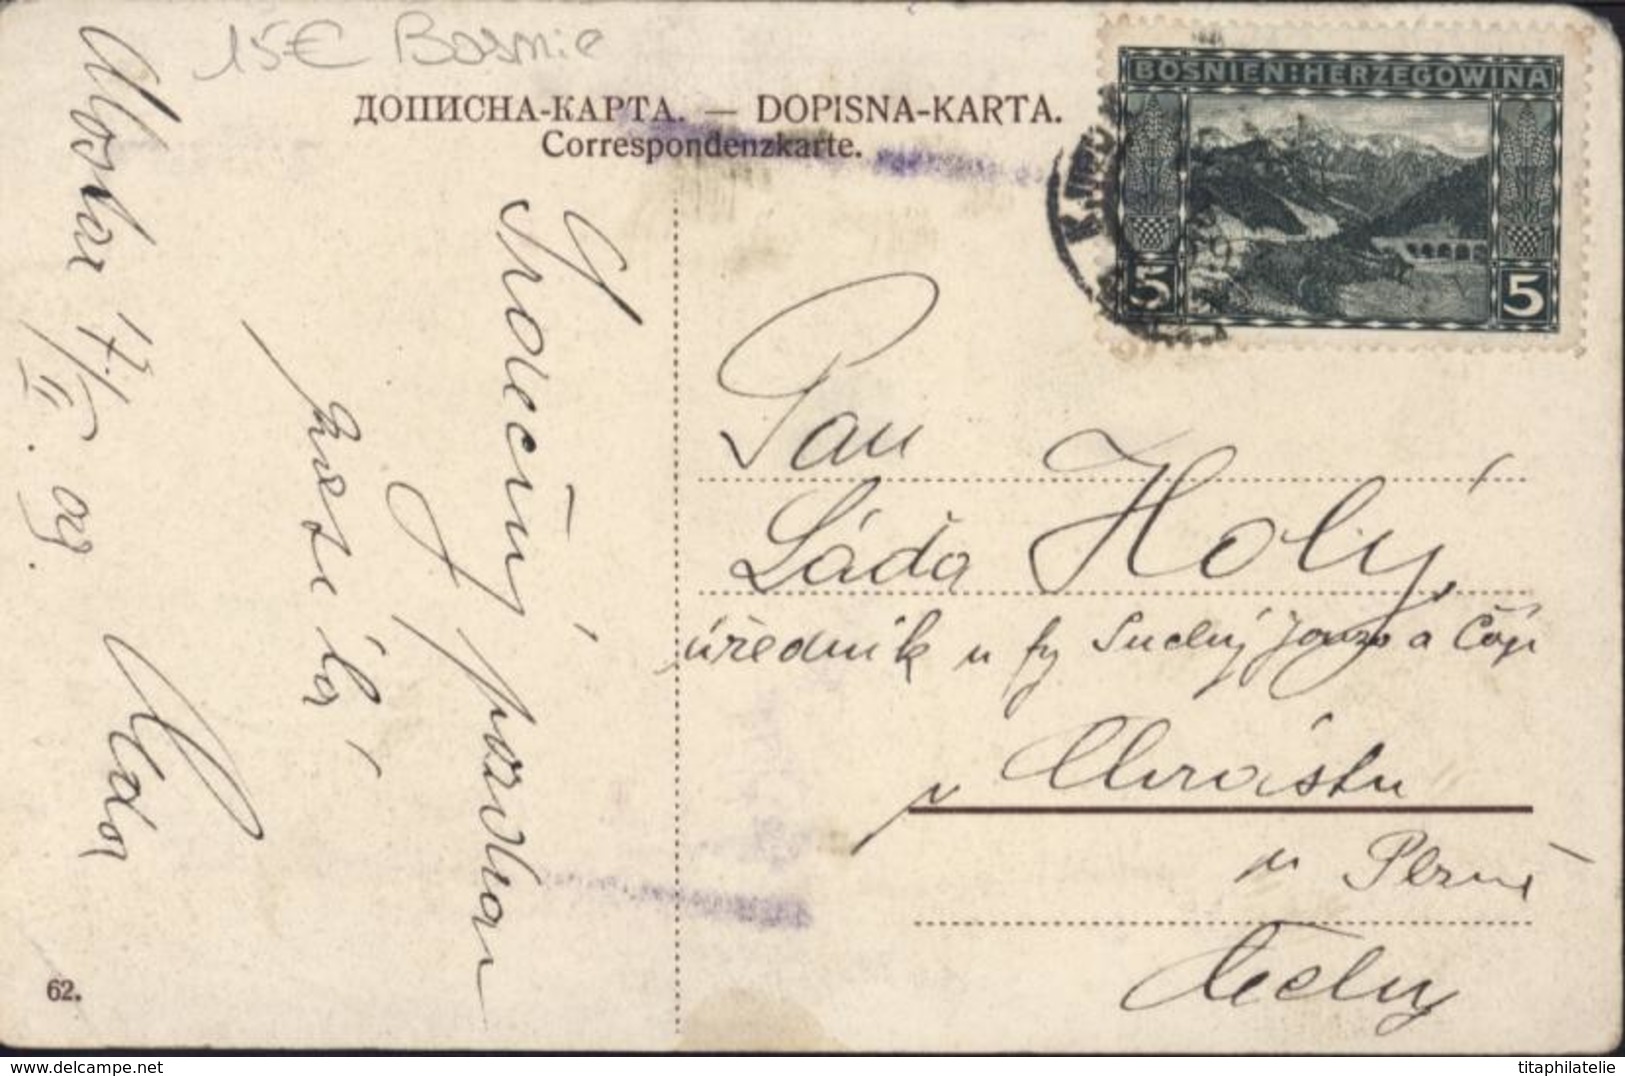 15€ Bosnie
ДОПИСНА-КАРТА. — DOPISNA-KARTA.
Correspondenzkarte.
BOSNIEN:HERZEGOWINA
5 5
Mostar 17/II. 09.
Srdečný pozdrav
Pan
Láďa Holý,
úředník u fy Suchý a
v
u Plzně
Čechy
62.
delcampe.net
titaphilatelie